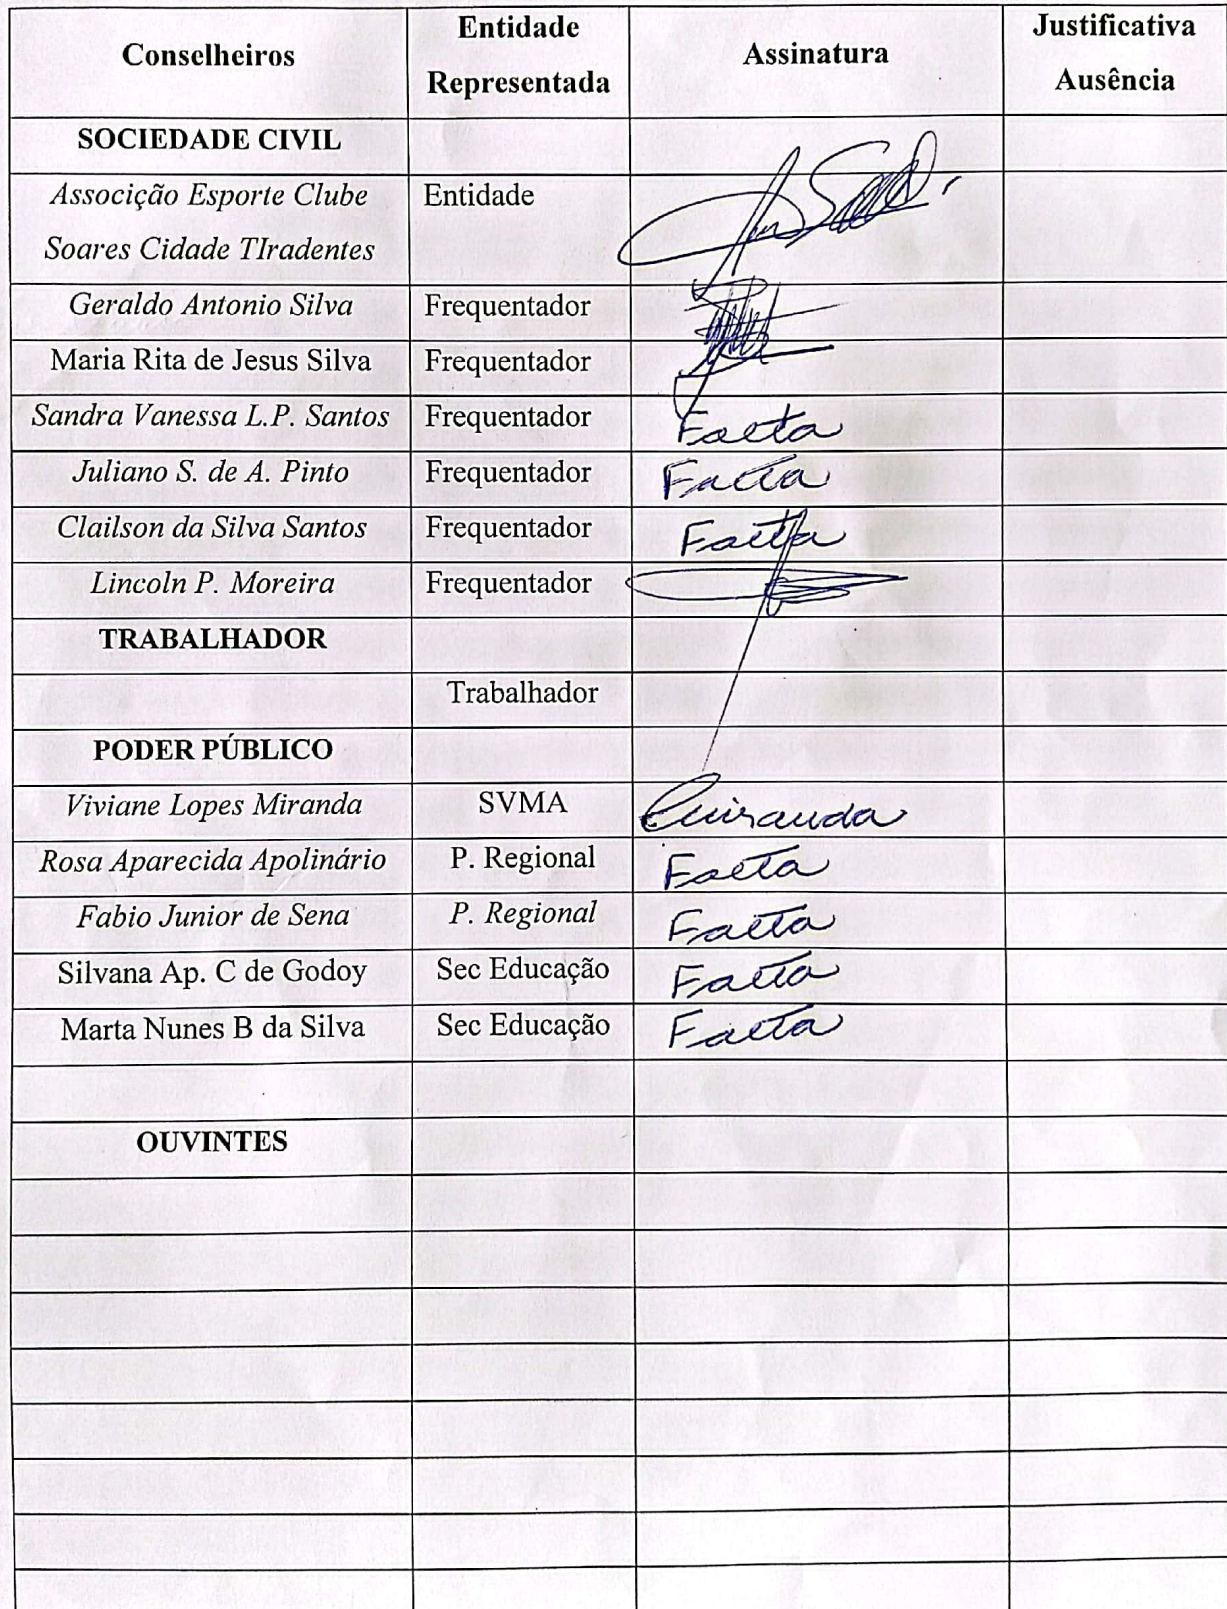 Conselheiros Entidade Representada Assinatura Justificativa Ausência
SOCIEDADE CIVIL
Associção Esporte Clube Entidade
Soares Cidade TIradentes
Geraldo Antonio Silva Frequentador
Maria Rita de Jesus Silva Frequentador
Sandra Vanessa L.P. Santos Frequentador Falta
Juliano S. de A. Pinto Frequentador Falta
Clailson da Silva Santos Frequentador Falta
Lincoln P. Moreira Frequentador
TRABALHADOR
Trabalhador
PODER PÚBLICO
Viviane Lopes Miranda SVMA
Rosa Aparecida Apolinário P. Regional Falta
Fabio Junior de Sena P. Regional Falta
Silvana Ap. C de Godoy Sec Educação Falta
Marta Nunes B da Silva Sec Educação Falta
OUVINTES